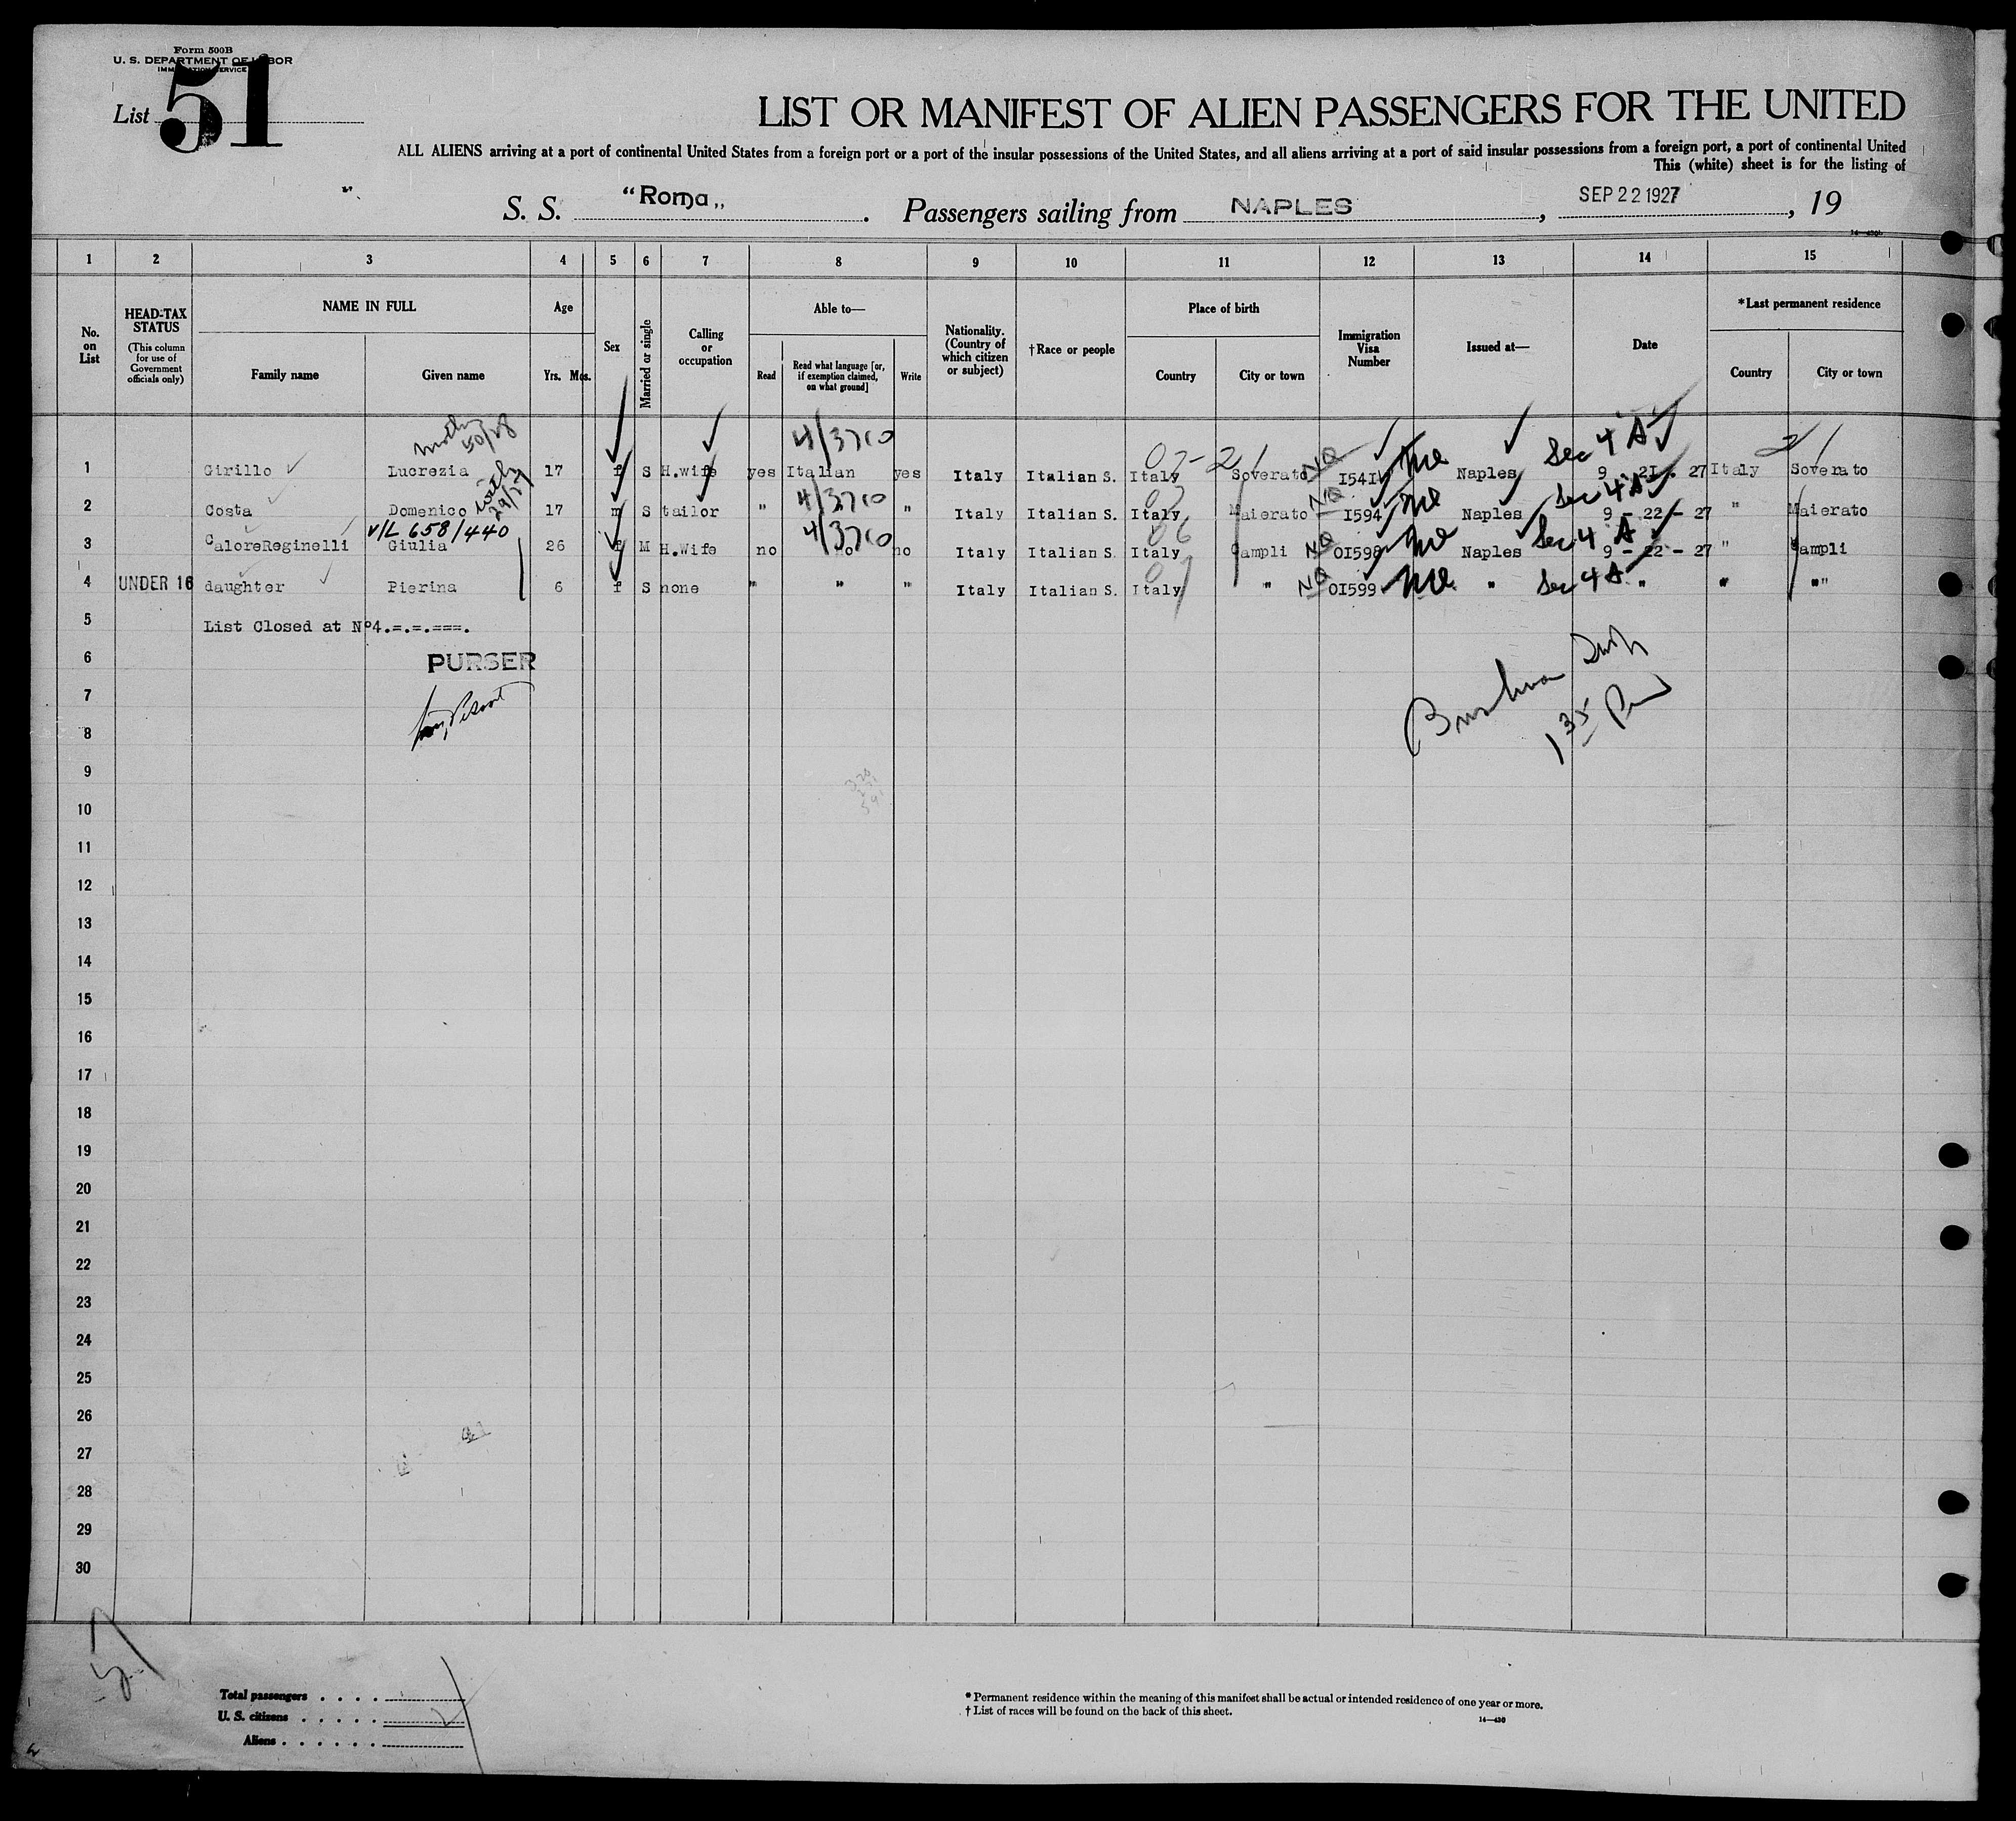 Form 500B
U. S. DEPARTMENT OF LABOR
IMMIGRATION SERVICE
List 51
LIST OR MANIFEST OF ALIEN PASSENGERS FOR THE UNITED
ALL ALIENS arriving at a port of continental United States from a foreign port or a port of the insular possessions of the United States, and all aliens arriving at a port of said insular possessions from a foreign port, a port of continental United
This (white) sheet is for the listing of
S. S. "Roma,, . Passengers sailing from NAPLES, SEP 22 1927, 19
1 2 3 4 5 6 7 8 9 10 11 12 13 14 15
No. on List
HEAD-TAX STATUS
(This column for use of Government officials only)
NAME IN FULL
Family name Given name
Age
Yrs. Mos.
Sex
Married or single
Calling or occupation
Able to—
Read
Read what language [or, if exemption claimed, on what ground]
Write
Nationality. (Country of which citizen or subject)
†Race or people
Place of birth
Country City or town
Immigration Visa Number
Issued at—
Date
*Last permanent residence
Country City or town
50/28 4/3710 07-21 Sec 4 A 21
1 Cirillo Lucrezia 17 f S H.wife yes Italian yes Italy Italian S. Italy Soverato NQ I541 Naples 9 - 2I - 27 Italy Soverato
29/27 4/3710 Sec 4 A
2 Costa Domenico 17 m S tailor " " Italy Italian S. Italy Maierato NQ I594 Naples 9 - 22 - 27 " Maierato
V/L 658/440 4/3710 06 Sec 4 A
3 CaloreReginelli Giulia 26 f M H.Wife no no no Italy Italian S. Italy Campli NQ OI598 Naples 9 - 22 - 27 " Campli
4 UNDER 16 daughter Pierina 6 f S none " " " Italy Italian S. Italy " NQ OI599 " Sec 4 A " " "
5 List Closed at Nº4.=.=.===.
6
PURSER
7
8
9
10
11
12
13
14
15
16
17
18
19
20
21
22
23
24
25
26
27
28
29
30
Total passengers . . . .
U. S. citizens . . . . .
Aliens . . . . . .
* Permanent residence within the meaning of this manifest shall be actual or intended residence of one year or more.
† List of races will be found on the back of this sheet.
14—430